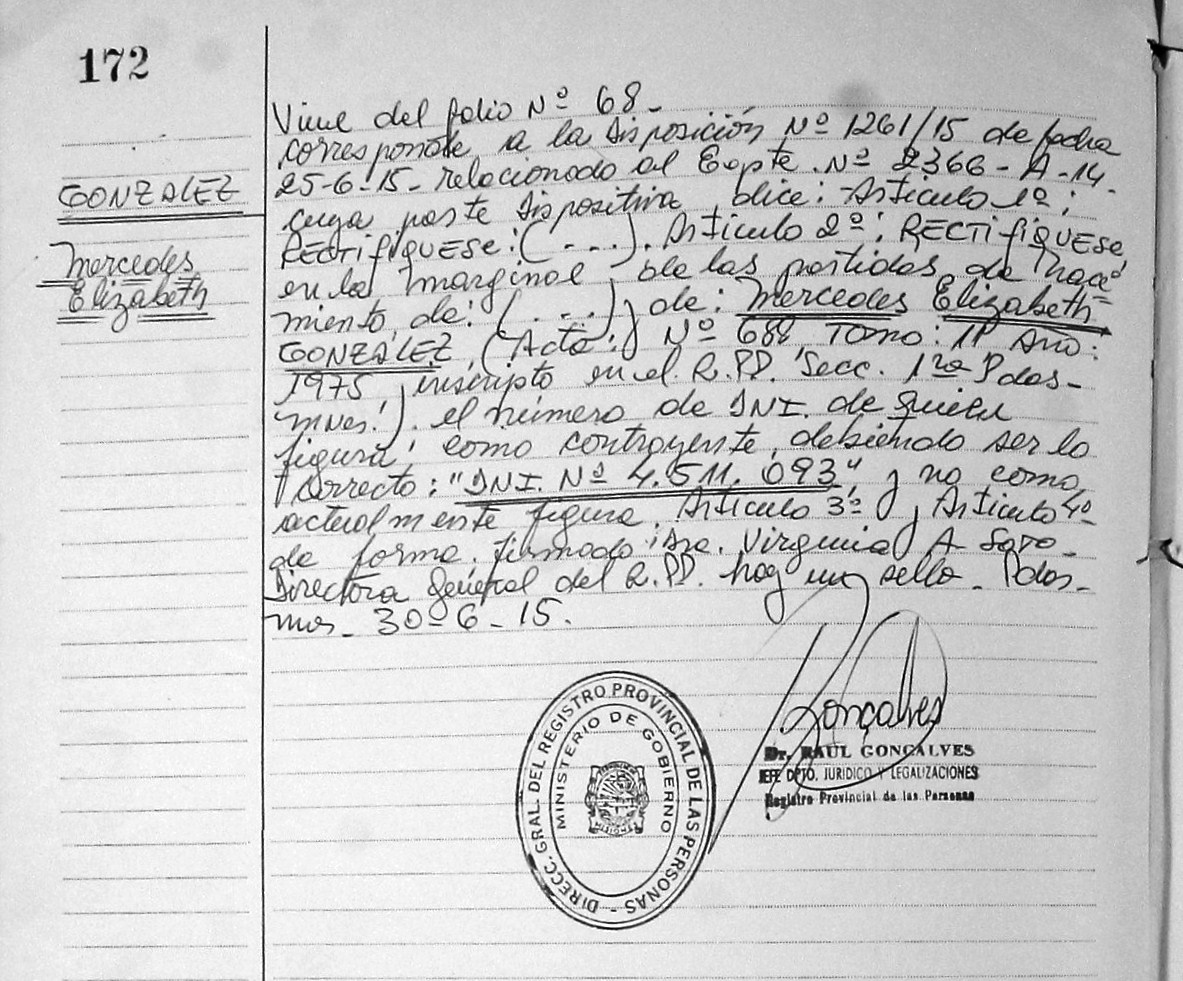 172
GONZALEZ
Mercedes
Elizabeth
Viene del folio Nº 68 -
corresponde a la Disposición Nº 1261/15 de fecha
25-6-15- relacionado al Expte. Nº 2366 - A -14-
cuya parte Dispositiva dice: Articulo 1º:
RECTIFIQUESE: (...). Articulo 2º: RECTIFIQUESE
en la marginal de las partidas de Naci=
miento de: (...) de: Mercedes Elizabeth
GONZÁLEZ (Acta: Nº 688 Tomo: 1º Año:
1975, inscripto en el R.PP. Secc. 1ra Pdas-
mnes.). el número de DNI. de quien
figura como contrayente, debiendo ser lo
correcto: "DNI. Nº 4.511.093" y no como
actualmente figura. Articulo 3º y Articulo 4º
de forma. firmado: Dra. Virginia A Soto-
Directora General del R.PP. hay un sello. Pdas-
mns- 30-6-15.
Gonçalves
Dr. RAUL GONCALVES
JEFE DPTO. JURIDICO Y LEGALIZACIONES
Registro Provincial de las Personas
DIRECC. GRAL. DEL REGISTRO PROVINCIAL DE LAS PERSONAS -
MINISTERIO DE GOBIERNO
MISIONES